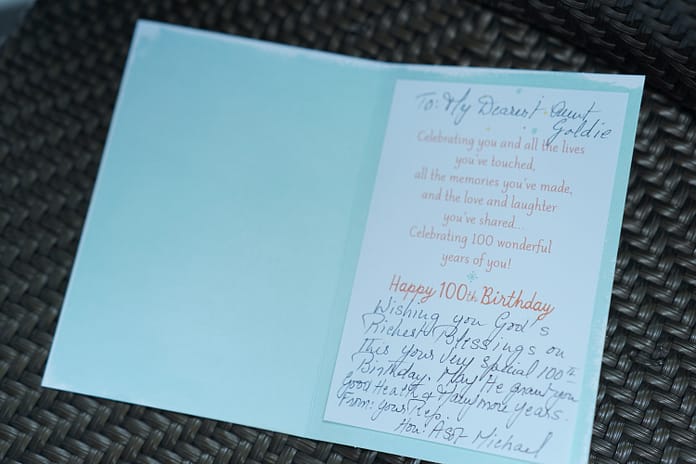 To: My Dearest Aunt
Goldie
Celebrating you and all the lives
you've touched,
all the memories you've made,
and the love and laughter
you've shared...
Celebrating 100 wonderful
years of you!
Happy 100th Birthday
Wishing you God's
Richest Blessings on
this your very special 100th
Birthday. May He grant you
Good Health & Many more years.
From: your Rep.
Hon: Michael